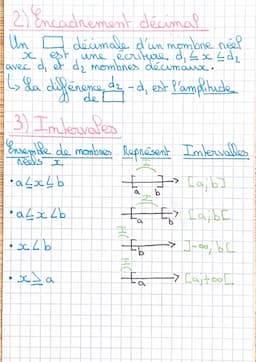 2) Encadrement décimal
Un □ décimale d'un nombre réel
x est une écriture d₁ ≤ x ≤ d₂
avec d₁ et d₂ nombres décimaux.
↳ La différence d₂ - d₁ est l'amplitude
de □
3) Intervalles
Ensemble de nombres Représent Intervalles
réels x
• a ≤ x ≤ b [a,b]
a b
• a ≤ x < b [a,b[
a b
• x < b ]-∞, b[
b
• x ≥ a [a,+∞[
a